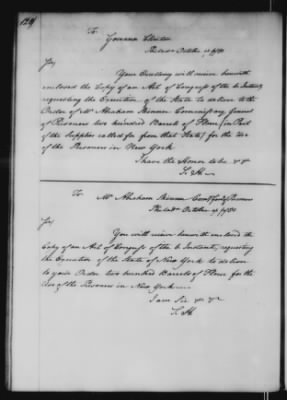 To
Governor Clinton
Philada October 1780
Sir,
Your Excellency will receive herewith
enclosed the Copy of an Act of Congress of the 6 Instant,
requesting the Executive of the State to deliver to the
Order of Mr Abraham Skinner Commissary General
of Prisoners two hundred Barrels of Flour (in Part
of the Supplies called for from that State) for the Use
of the Prisoners in New York
I have the Honor to be &c
S. H
To Mr Abraham Skinner Prisoners
Philada October 1780
Sir,
You will receive herewith enclosed the
Copy of an Act of Congress of the 6 Instant, requesting
the Executive of the State of New York to deliver
to your Order two hundred Barrels of Flour for the
Use of the Prisoners in New York
I am Sir &c &c
S. H